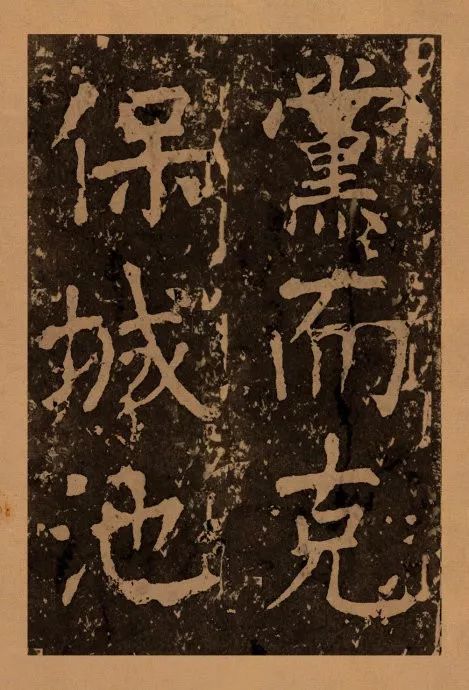 黨而克
保城池